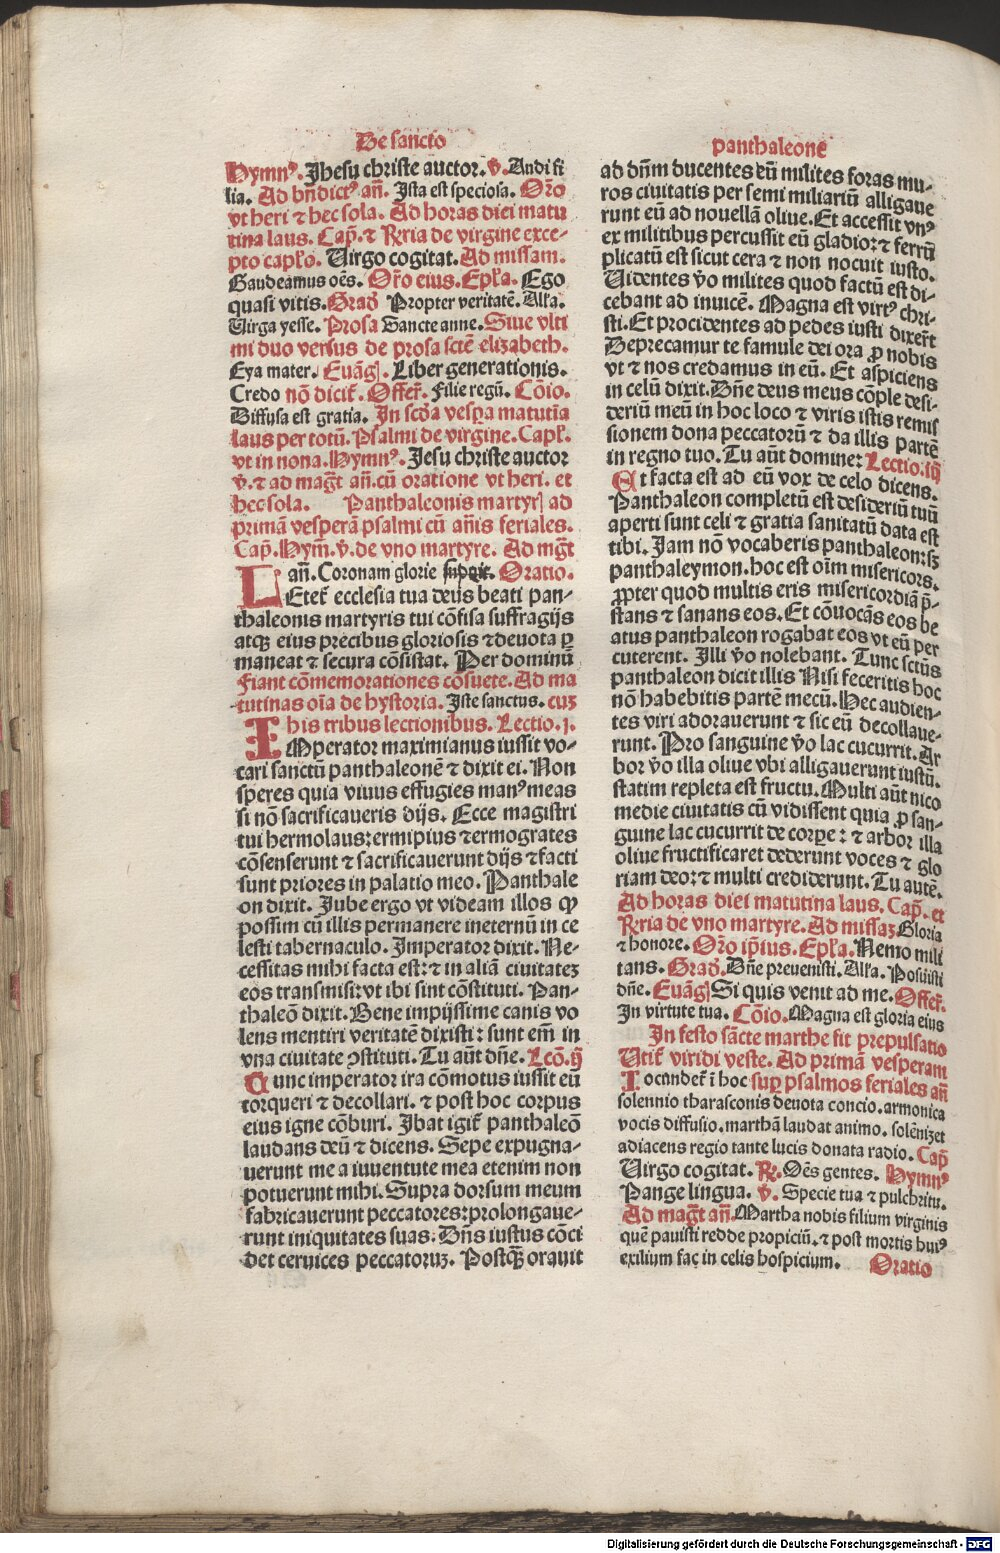 De sancto
Hymnꝰ. Jhesu christe auctor. v̄. Audi fi
lia. Ad bn̄dictꝰ an̄. Ista est speciosa. Or̄o
vt heri ⁊ hec sola. Ad horas diei matu
tina laus. Cap̄. ⁊ Rr̄ia de virgine exce-
pto capl̄o. Virgo cogitat. Ad missam.
Gaudeamus oēs. Or̄o eius. Epl̄a. Ego
quasi vitis. Grad̄ Propter veritatē. All̄a.
Virga yesse. Prosa Sancte anne. Siue vlti
mi duo versus de prosa scīē elizabeth.
Eya mater. Euāgꝭ. Liber generationis.
Credo nō dicit̄. Offer̄. Filie regū. Cōio.
Diffusa est gratia. In scd̄a vesp̱a matutīa
laus per totū. Psalmi de virgine. Capl̄.
vt in nona. Hymnꝰ. Jesu christe auctor
v̄. ⁊ ad mag̅t an̄. cū oratione vt heri. et
hec sola. Panthaleonis martyrꝭ ad
primā vesperā psalmi cū an̄is feriales.
Cap̄. Hym̄. v̄. de vno martyre. Ad mg̅t
an̄. Coronam glorie Oratio.
LEtet̄ ecclesia tua deus beati pan-
thaleonis martyris tui cōfisa suffragijs
atqꝫ eius precibus gloriosis ⁊ deuota ꝑ
maneat ⁊ secura cōsistat. Per dominū
Fiant cōmemorationes cōsuete. Ad ma
tutinas oīa de hystoria. Iste sanctus. cuꝫ
his tribus lectionibus. Lectio .j.
IMperator maximianus iussit vo-
cari sanctū panthaleonē ⁊ dixit ei. Non
speres quia viuus effugies manꝰ meas
si nō sacrificaueris dijs. Ecce magistri
tui hermolaus: ermipius ⁊ ermogrates
cōsenserunt ⁊ sacrificauerunt dijs ⁊ facti
sunt priores in palatio meo. Panthale
on dixit. Jube ergo vt videam illos ꝙ
possim cū illis permanere ineternū in ce
lesti tabernaculo. Imperator dixit. Ne-
cessitas mihi facta est: ⁊ in aliā ciuitateꝫ
eos transmisi: vt ibi sint cōstituti. Pan-
thaleō dixit. Bene impijssime canis vo
lens mentiri veritatē dixisti: sunt em̄ in
vna ciuitate ↄstituti. Tu aūt dn̄e. Lcō. ij
Tunc imperator ira cōmotus iussit eū
torqueri ⁊ decollari. ⁊ post hoc corpus
eius igne cōburi. Ibat igit̄ panthaleō
laudans deū ⁊ dicens. Sepe expugna-
uerunt me a iuuentute mea etenim non
potuerunt mihi. Supra dorsum meum
fabricauerunt peccatores: prolongaue-
runt iniquitates suas. Dn̄s iustus cōci
det ceruices peccatoruꝫ. Postqꝫ orauit
panthaleone
ad dn̄m ducentes eū milites foras mu-
ros ciuitatis per semi miliariū alligaue
runt eū ad nouellā oliue. Et accessit vnꝰ
ex militibus percussit eū gladio: ⁊ ferrū
plicatū est sicut cera ⁊ non nocuit iusto.
Videntes v̄o milites quod factū est di-
cebant ad inuicē. Magna est virtꝰ chri-
sti. Et procidentes ad pedes iusti dixer̄t
Deprecamur te famule dei ora ꝓ nobis
vt ⁊ nos credamus in eū. Et aspiciens
in celū dixit. Dn̄e deus meus cōple desi-
deriū meū in hoc loco ⁊ viris istis remis
sionem dona peccatorū ⁊ da illis partē
in regno tuo. Tu aūt domine: Lectio. iij
Et facta est ad eū vox de celo dicens.
Panthaleon completū est desideriū tuū
aperti sunt celi ⁊ gratia sanitatū data est
tibi. Jam nō vocaberis panthaleon: sꝫ
panthaleymon. hoc est oīm misericors.
ꝓpter quod multis eris misericordiā p̄-
stans ⁊ sanans eos. Et cōuocās eos be
atus panthaleon rogabat eos vt eū per
cuterent. Illi v̄o nolebant. Tunc sctūs
panthaleon dicit illis Nisi feceritis hoc
nō habebitis partē mecū. Hec audien-
tes viri adorauerunt ⁊ sic eū decollaue-
runt. Pro sanguine v̄o lac cucurrit. Ar
bor v̄o illa oliue vbi alligauerunt iustū.
statim repleta est fructu. Multi aūt nico
medie ciuitatis cū vidissent quia ꝓ san-
guine lac cucurrit de corpe: ⁊ arbor illa
oliue fructificaret dederunt voces ⁊ glo
riam deo: ⁊ multi crediderunt. Tu autē.
Ad horas diei matutina laus. Cap̄. et
Rr̄ia de vno martyre. Ad missaꝫ Gloria
⁊ honore. Or̄o ip̄ius. Epl̄a. Nemo mili
tans. Grad̄. Dn̄e preuenisti. All̄a. Posuisti
dn̄e. Euāgꝭ Si quis venit ad me. Offer̄.
In virtute tua. Cōio. Magna est gloria eius
In festo sācte marthe fit prepulsatio
Utit̄ viridi veste. Ad primā vesperam
Iocundet̄ ī hoc sup̱ psalmos feriales an̄
solennio tharasconis deuota concio. armonica
vocis diffusio. marthā laudat animo. solēnizet
adiacens regio tante lucis donata radio. Cap̄
Virgo cogitat. R̄. Oēs gentes. Hymnꝰ
Pange lingua. v̄. Specie tua ⁊ pulchritu.
Ad mag̅t an̄. Martha nobis filium virginis
quē pauisti redde propiciū. ⁊ post mortis huiꝰ
exilium fac in celis hospicium. Oratio
Digitalisierung gefördert durch die Deutsche Forschungsgemeinschaft - DFG